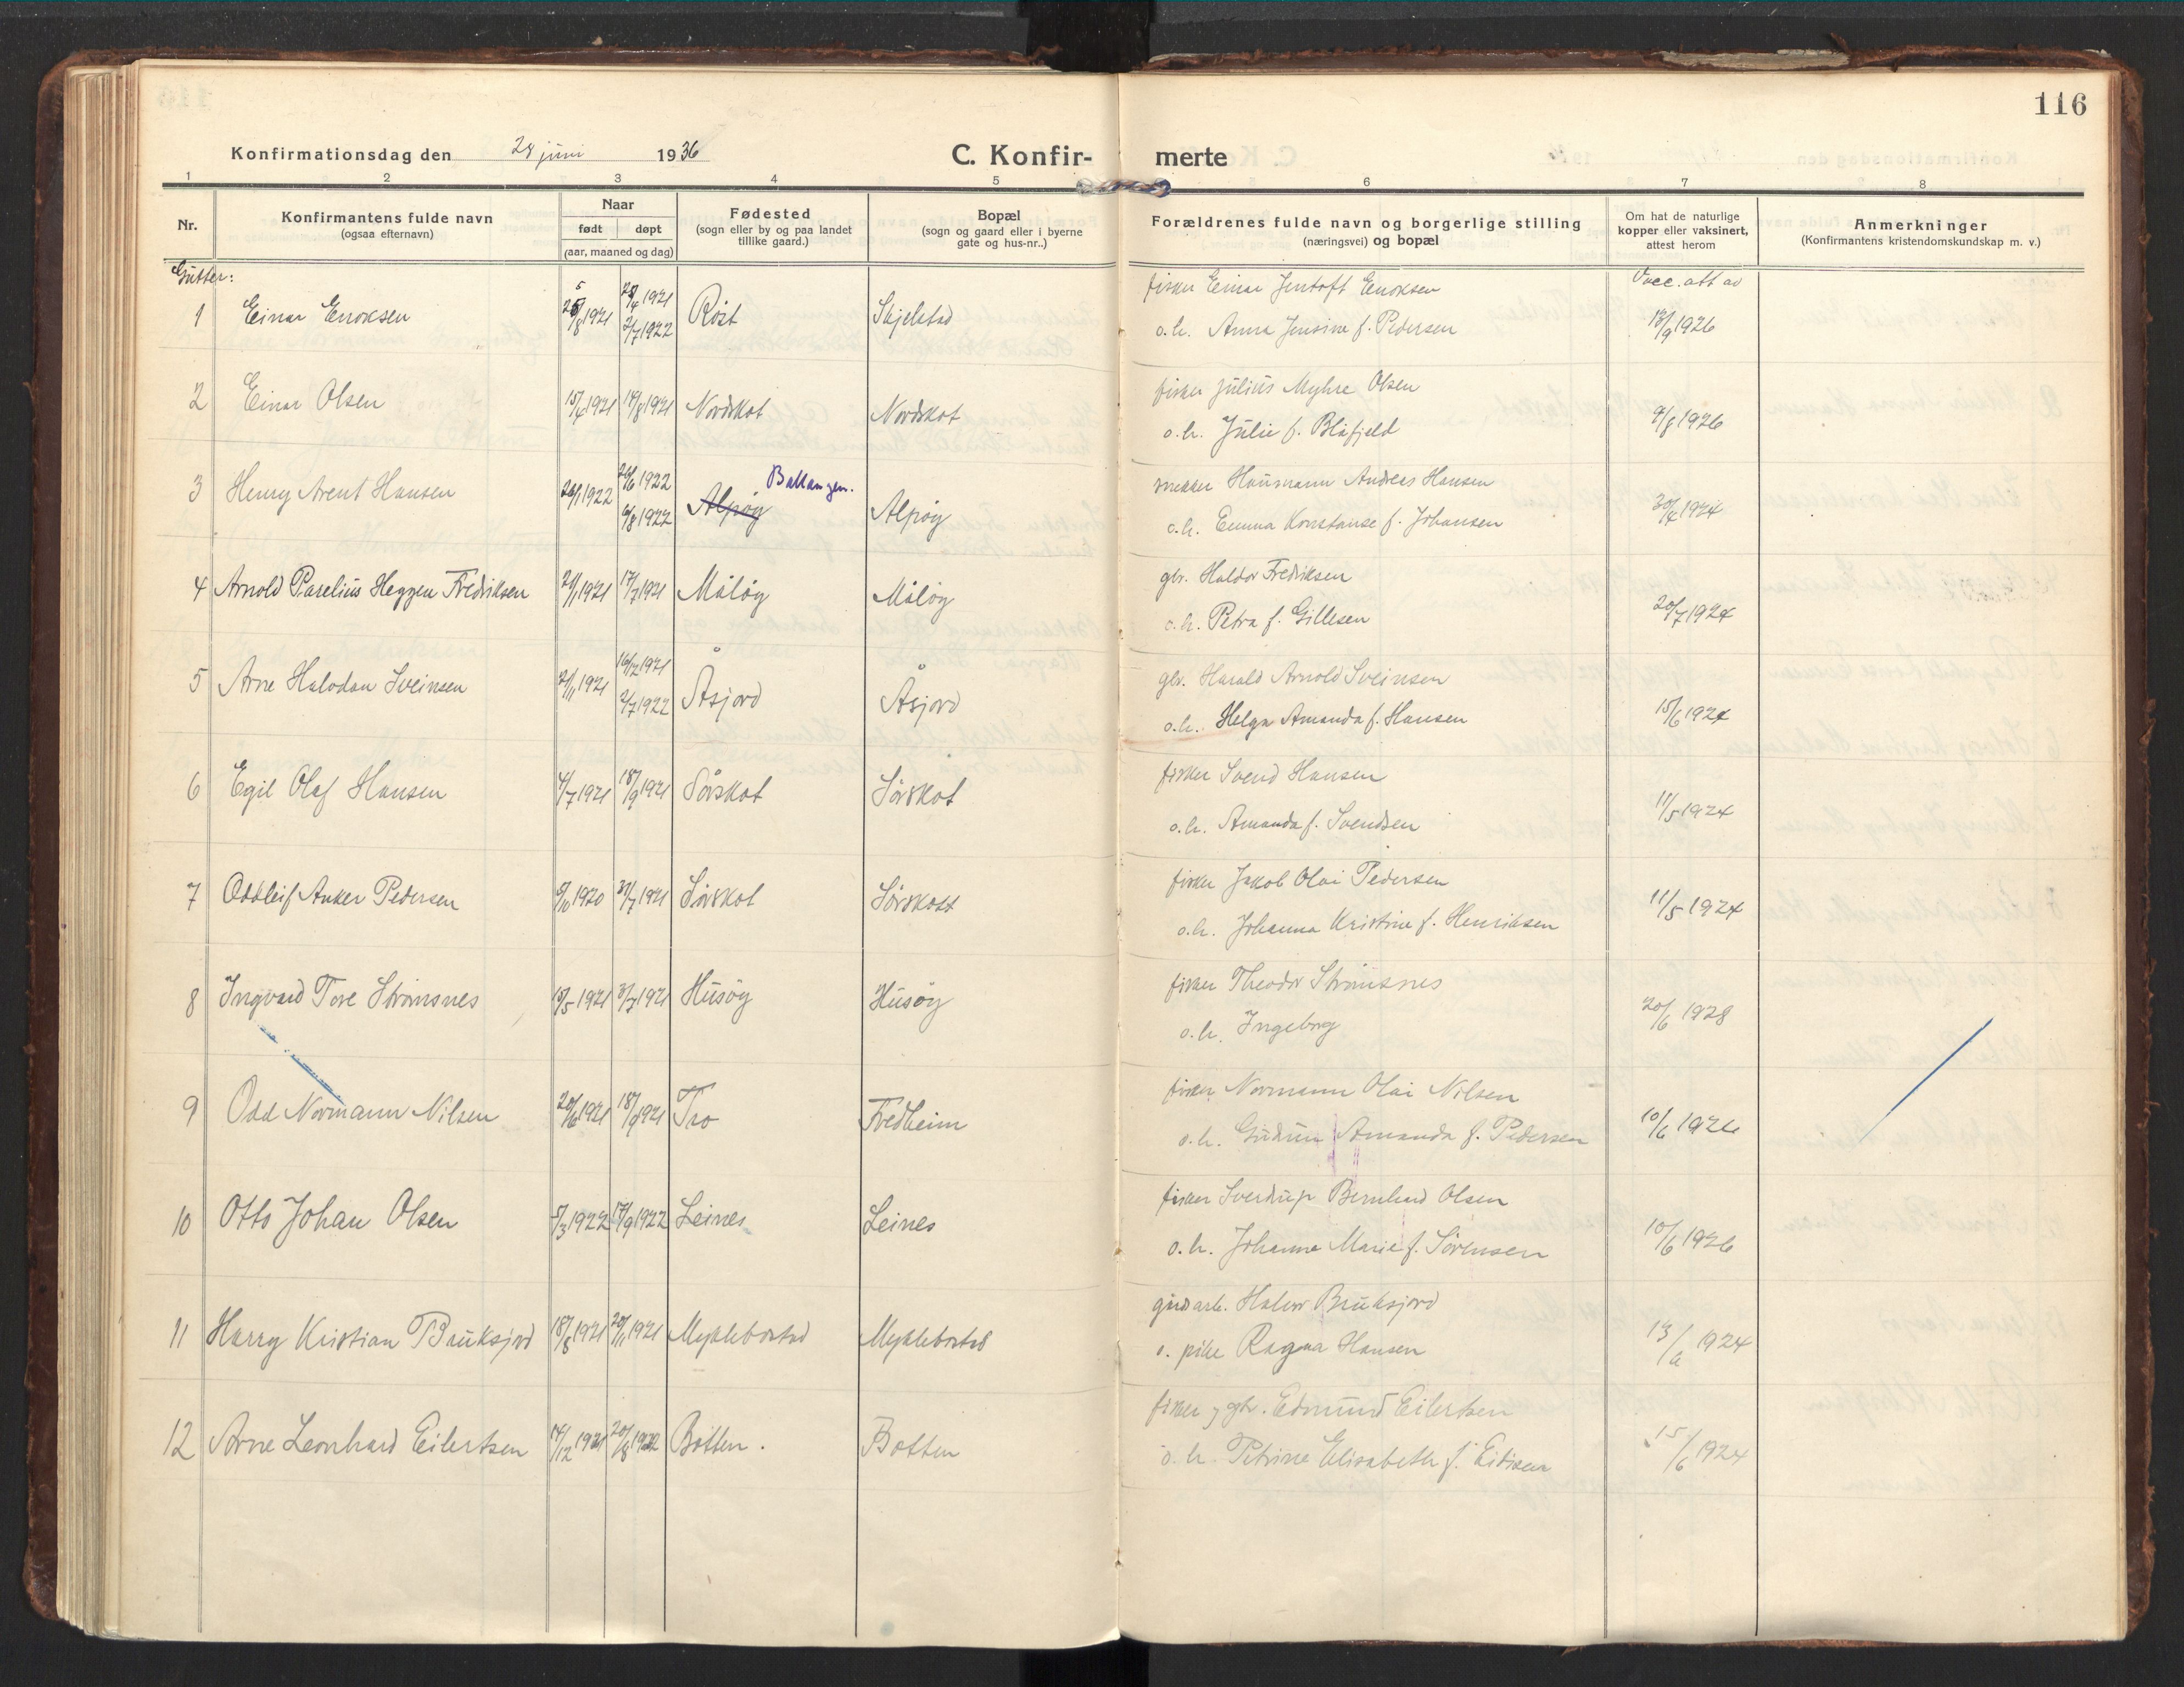 116
Konfirmationsdag den 28 juni 1936 C. Konfirmerte
1 2 3 4 5 6 7 8
Nr.
Konfirmantens fulde navn
(ogsaa efternavn)
Naar
født døpt
(aar, maaned og dag)
Fødested
(sogn eller by og paa landet
tillike gaard.)
Bopæl
(sogn og gaard eller i byerne
gate og hus-nr..)
Forældrenes fulde navn og borgerlige stilling
(næringsvei) og bopæl
Om hat de naturlige
kopper eller vaksinert,
attest herom
Anmerkninger
(Konfirmantens kristendomskundskap m. v.)
Gutter:
1 Einar Enoksen 1921 1921 2/7 1922 Röst Skjelstad
fisker Einar Jentoft Enoksen
o.h. Anna Jensine f. Pedersen
Vacc. att av
18/9 1926
2 Einar Olsen 15/4 1921 14/8 1921 Nordskot Nordskot
fisker Julius Myhre Olsen
o.h. Julie f. Blåfjeld
9/8 1926
3 Henry Arent Hansen 1922 1922 6/8 1922 Alpöy Ballangen. Alpöy
snekker Hansmann Andreas Hansen
o.h. Emma Konstanse f. Johansen
30/4 1924
4 Arnold Parelius Heggen Fredriksen 21/1 1921 17/7 1921 Målöy Målöy
gbr. Haldor Fredriksen
o.h. Petra f. Gillesen
20/7 1924
5 Arne Halvdan Sveinsen 21/11 1921 16/12 1921 2/7 1922 Åsjord Åsjord
gbr. Harald Arnold Sveinsen
o.h. Helga Amanda f. Hansen
15/6 1924
6 Egil Olaf Hansen 4/7 1921 18/9 1921 Sörskot Sörskot
fisker Svend Hansen
o.h. Amanda f. Svendsen
11/5 1924
7 Oddleif Anker Pedersen 5/10 1920 31/7 1921 Sörskot Sörskott
fisker Jakob Olai Pedersen
o.h. Johanna Kristine f. Henriksen
11/5 1924
8 Ingvard Tore Strömsnes 15/5 1921 31/7 1921 Husöy Husöy
fisker Theodor Strömsnes
o.h. Ingeborg
20/6 1928
9 Odd Normann Nilsen 20/6 1921 18/9 1921 Tro Fredheim
fisker Normann Olai Nilsen
o.h. Gudrun Amanda f. Pedersen
10/6 1926
10 Otto Johan Olsen 5/3 1922 17/9 1922 Leines Leines
fisker Sverdrup Bernhard Olsen
o.h. Johanna Marie f. Sörensen
10/6 1926
11 Harry Kristian Bruksjord 18/8 1921 20/11 1921 Myklebostad Myklebostad
Halvor Bruksjord
o. pike Ragna Hansen
13/6 1924
12 Arne Leonhard Eilertsen 14/12 1921 20/8 1922 Botten. Botten
fisker og gbr. Edmund Eilertsen
o.h. Petrine Elisabeth f. Eidisen
15/6 1924